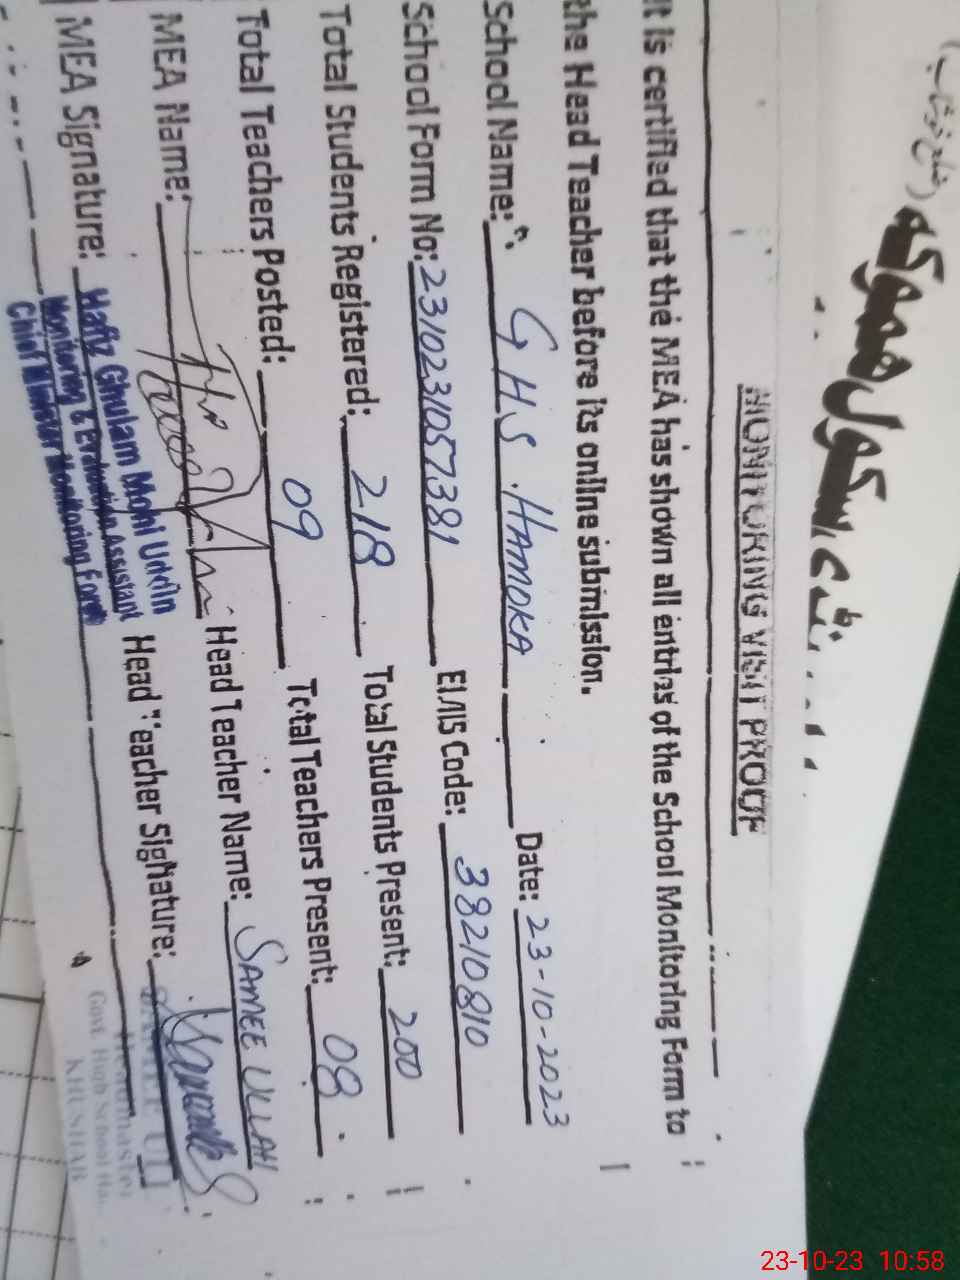 گورنمنٹ ہائی سکول ہموکہ (ضلع خوشاب)
MONITORING VISIT PROOF
It is certified that the MEA has shown all entries of the School Monitoring Form to
the Head Teacher before its online submission.
School Name: GHS HAMOKA Date: 23-10-2023
School Form No: 2310231057381 EMIS Code: 38210810
Total Students Registered: 218 Total Students Present: 200
Total Teachers Posted: 09 Total Teachers Present: 08
MEA Name: Head Teacher Name: SAMEE ULLAH
MEA Signature: Head Teacher Signature:
Hafiz Ghulam Mohi Uddin
Monitoring & Evaluation Assistant
Chief Minister Monitoring Force
SAMEE ULL
Headmaster
Govt. High School Ha
KHUSHAB
23-10-23 10:58